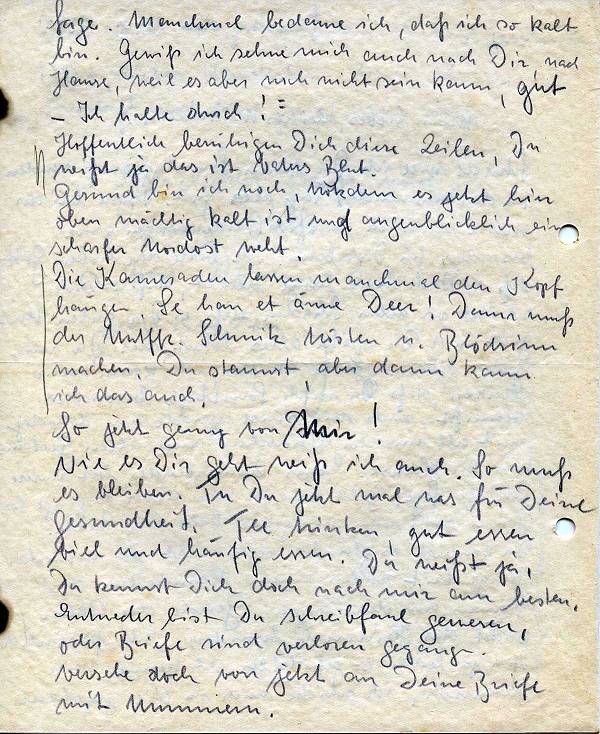 sage. Manchmal bedaure ich, daß ich so kalt
bin. Gewiß ich sehne mich auch nach Dir, nach
Hause, weil es aber noch nicht sein kann, gut
– Ich halte durch!
Hoffentlich beruhigen Dich diese Zeilen, Du
weißt ja das ist Vaters Blut.
Gesund bin ich noch, trotzdem es jetzt hier
oben mächtig kalt ist und augenblicklich ein
scharfer Nordost weht.
Die Kameraden lassen manchmal den Kopf
hängen. Se han et ärme Deer! Dann muß
der Uffz. trösten u. Blödsinn
machen. Du staunst, aber dann kann
ich das auch.
So jetzt genug von Mir!
Wie es Dir geht weiß ich auch. So muß
es bleiben. Tu Du jetzt mal was für Deine
Gesundheit. Tee trinken, gut essen
viel und häufig essen. Du weißt ja,
Du kennst Dich doch nach mir am besten.
Entweder bist Du schreibfaul gewesen,
oder Briefe sind verloren gegange.
versehe doch von jetzt an Deine Briefe
mit Nummern.